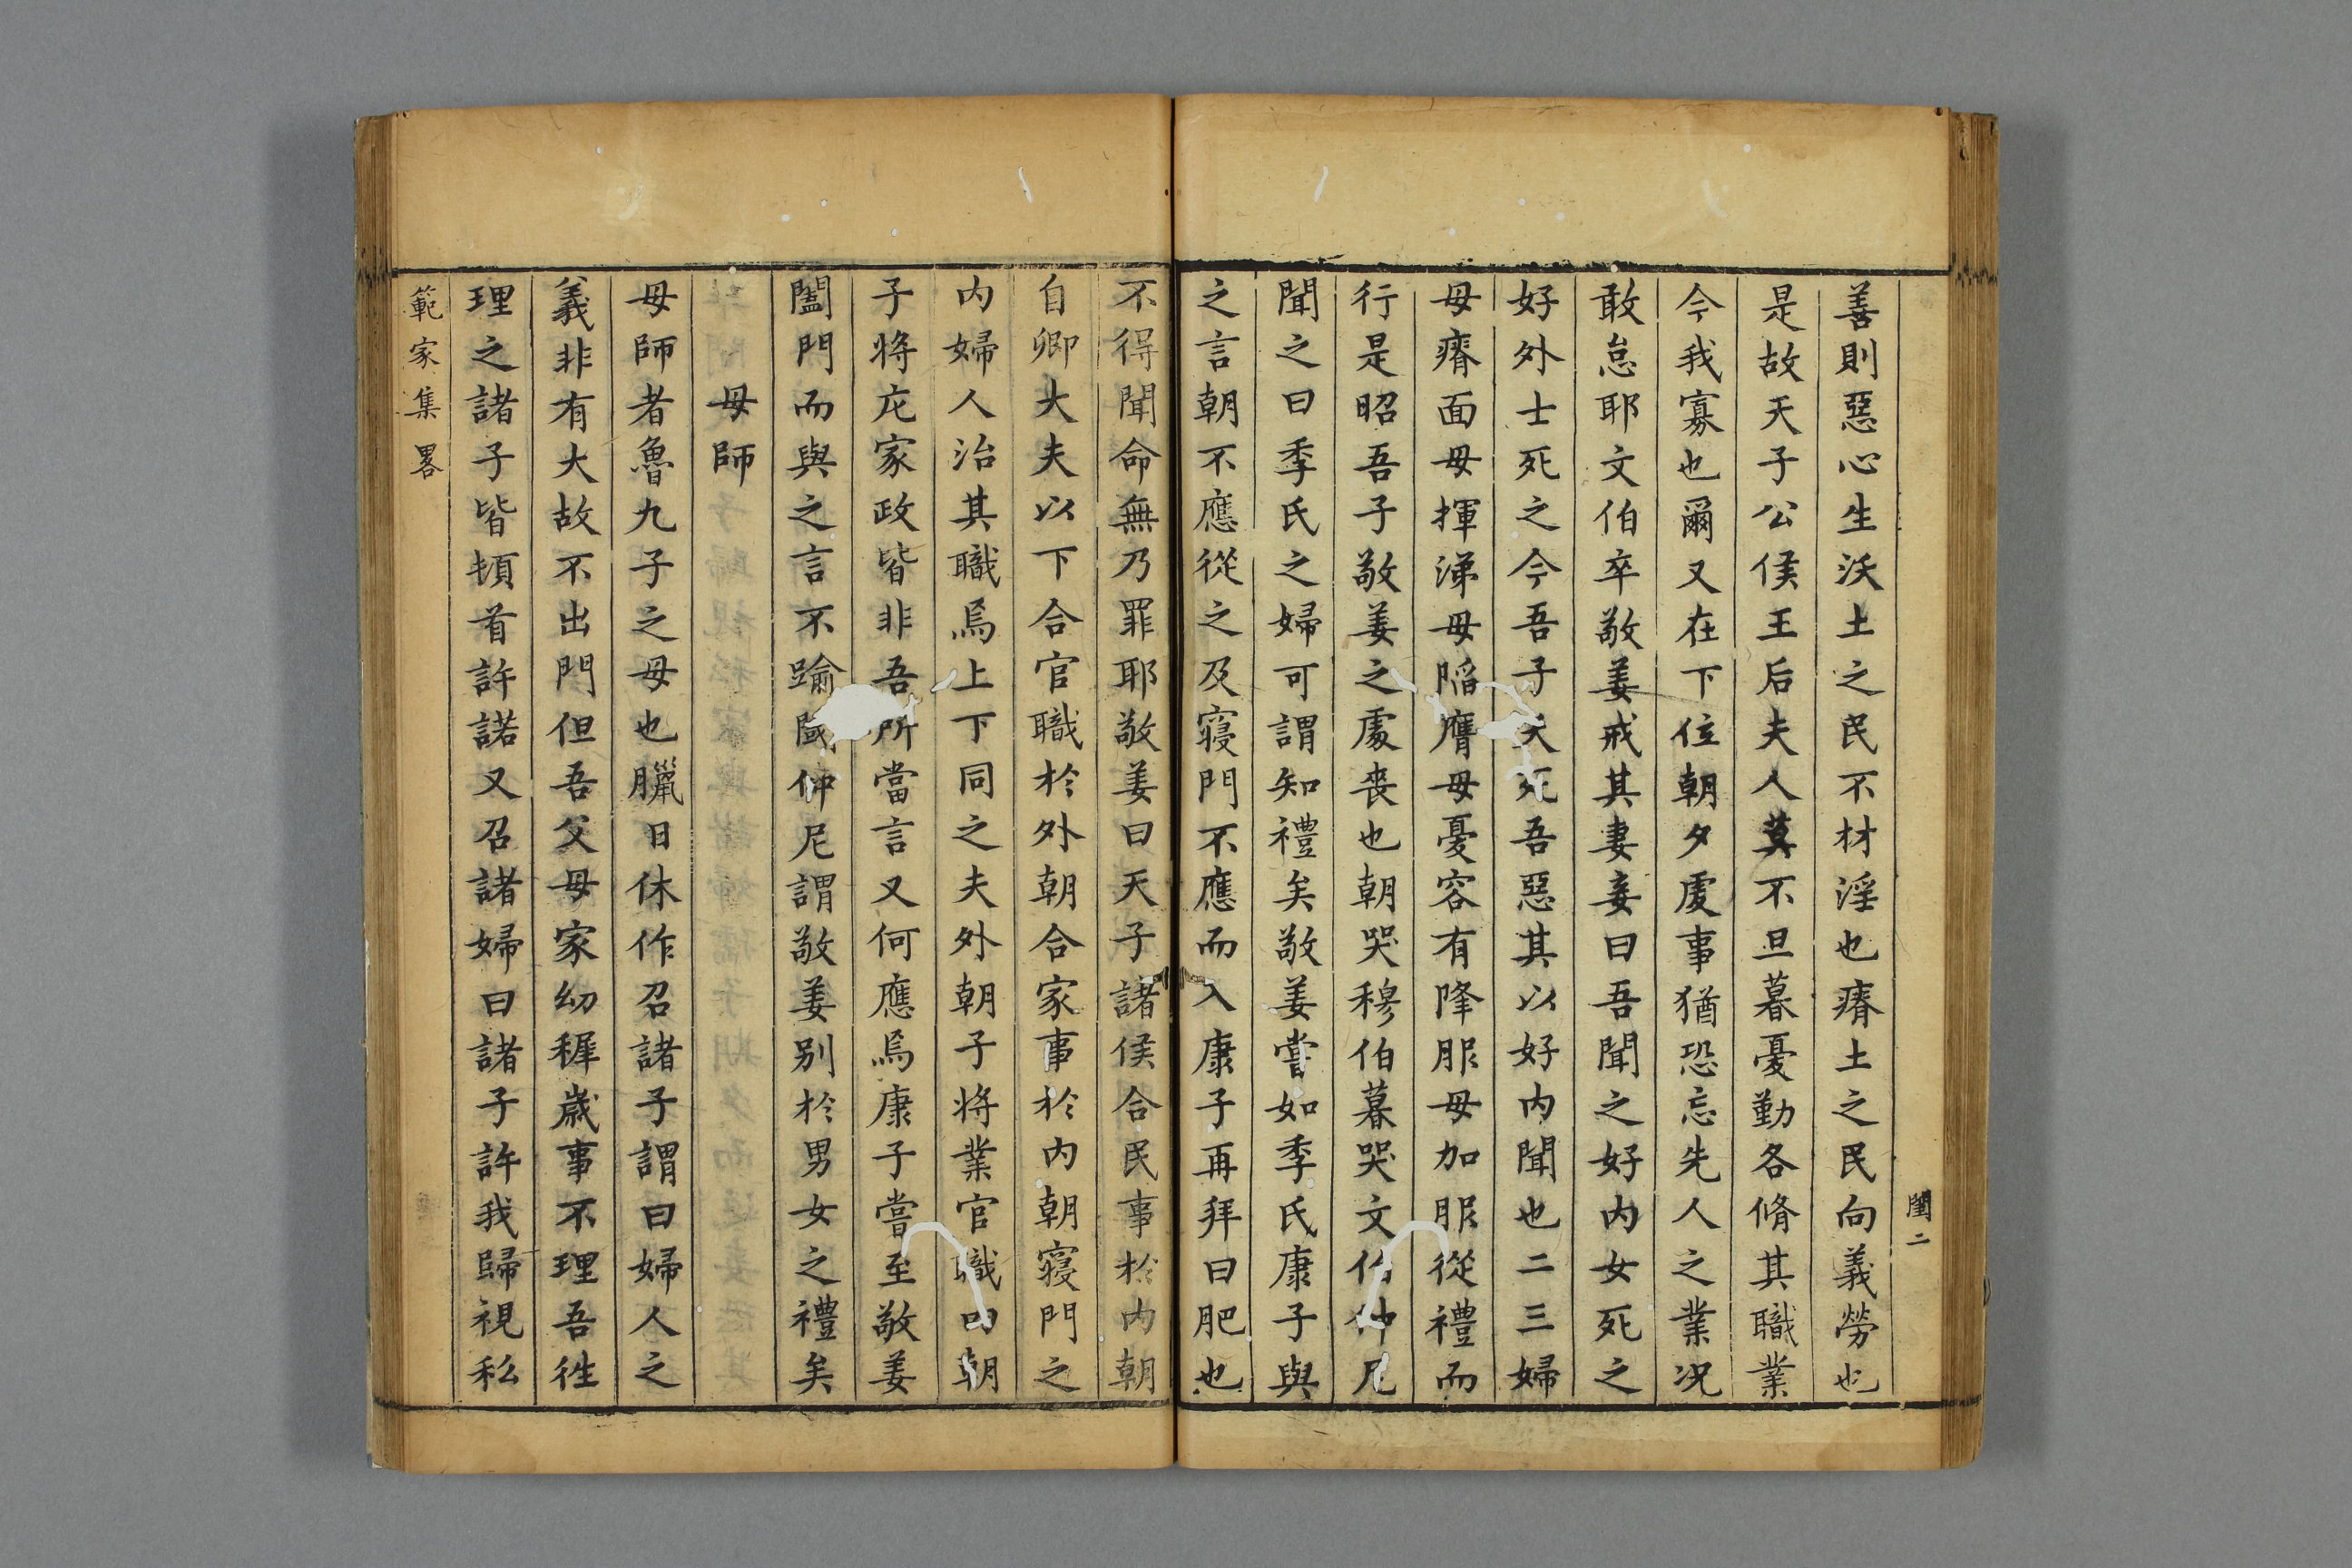 閨二
善則惡心生沃土之民不材淫也瘠土之民向義勞也
是故天子公侯王后夫人莫不旦暮憂勤各脩其職業
今我寡也爾又在下位朝夕處事猶恐忘先人之業况
敢怠耶文伯卒敬姜戒其妻妾曰吾聞之好内女死之
好外士死之今吾子夭死吾惡其以好内聞也二三婦
毋瘠面毋揮涕毋陷膺毋憂容有降服毋加服從禮而
行是昭吾子敬姜之處喪也朝哭穆伯暮哭文伯仲尼
聞之曰季氏之婦可謂知禮矣敬姜嘗如季氏康子與
之言朝不應從之及寢門不應而入康子再拜曰肥也
不得聞命無乃罪耶敬姜曰天子諸侯合民事於内朝
自卿大夫以下合官職於外朝合家事於内朝寢門之
内婦人治其職焉上下同之夫外朝子將業官職内朝
子將庀家政皆非吾所當言又何應焉康子嘗至敬姜
闔門而與之言不踰閾仲尼謂敬姜别於男女之禮矣
母師
母師者魯九子之母也臘日休作召諸子謂曰婦人之
義非有大故不出門但吾父母家幼穉歲事不理吾徃
理之諸子皆頓首許諾又召諸婦曰諸子許我歸視私
範家集畧